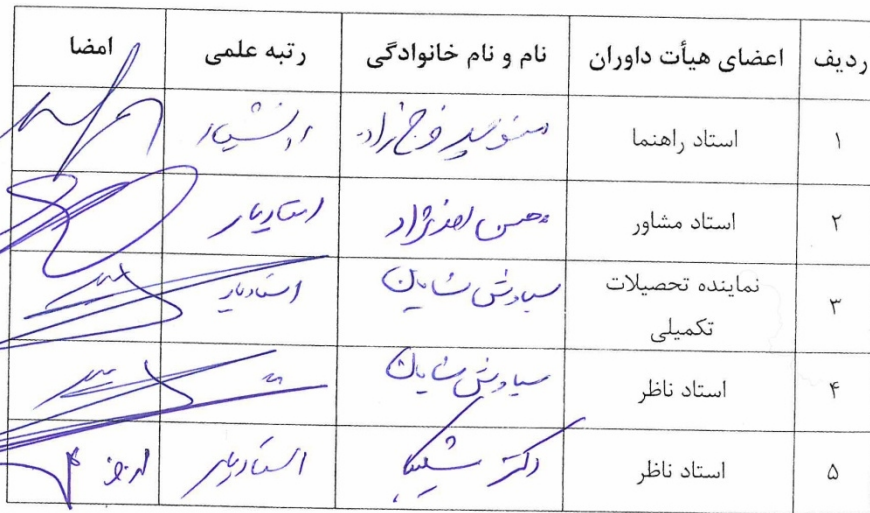 ردیف اعضای هیأت داوران نام و نام خانوادگی رتبه علمی امضا
۱ استاد راهنما منوچهر فرج‌زاده دانشیار
۲ استاد مشاور حسن استادیار
۳ نماینده تحصیلات تکمیلی سیاوش شایان استادیار
۴ استاد ناظر سیاوش شایان
۵ استاد ناظر دکتر شکیبا استادیار